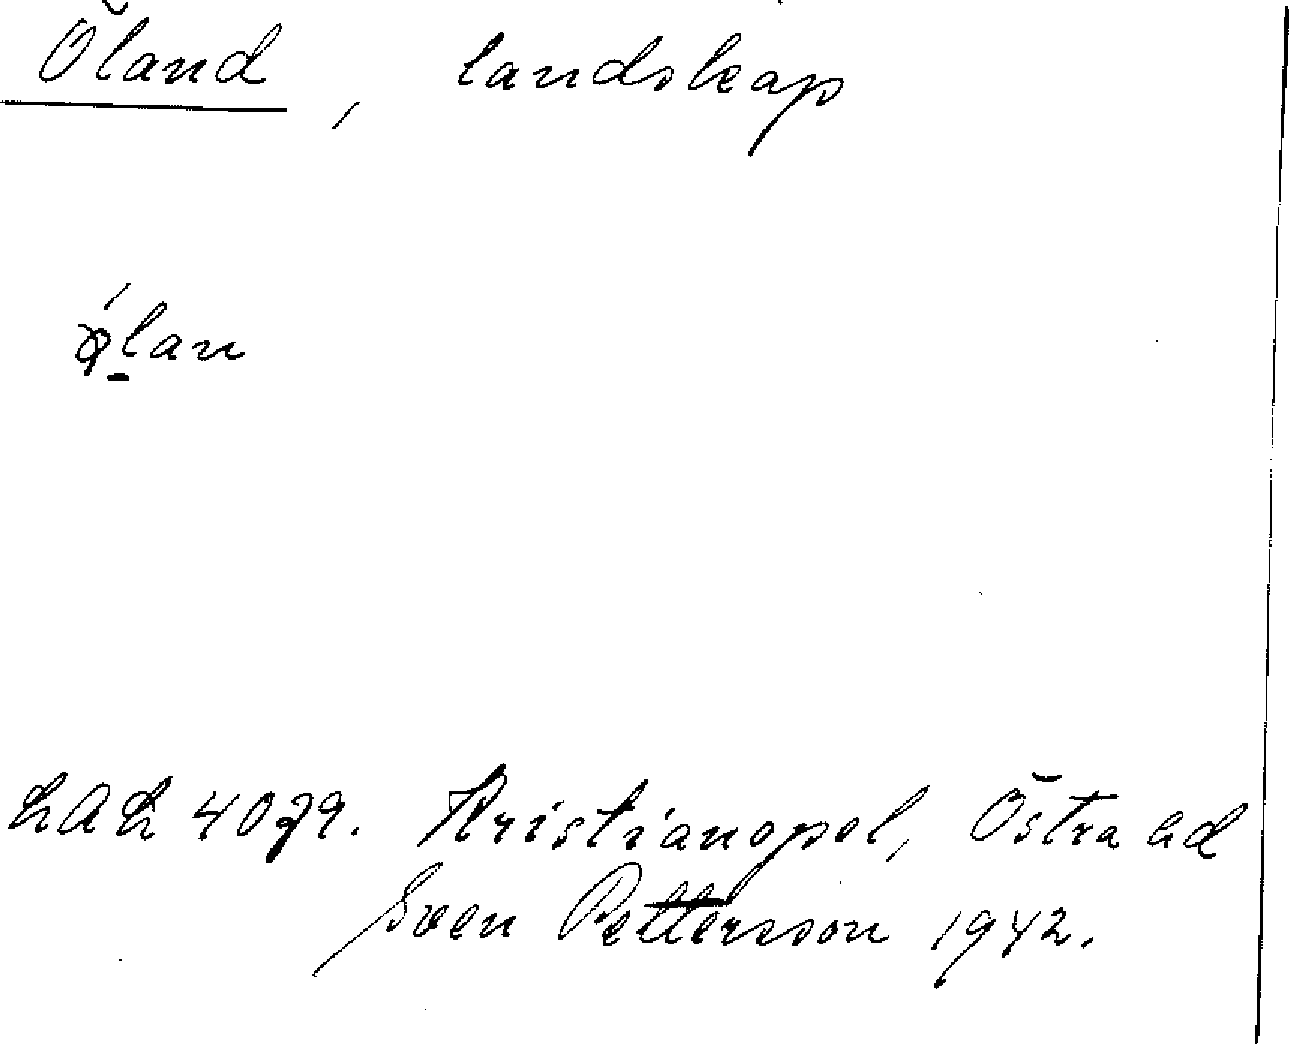 Öland, landskap
ǿlan
LAL 4079. Kristianopel, Östra hd
Sven Pettersson 1942.